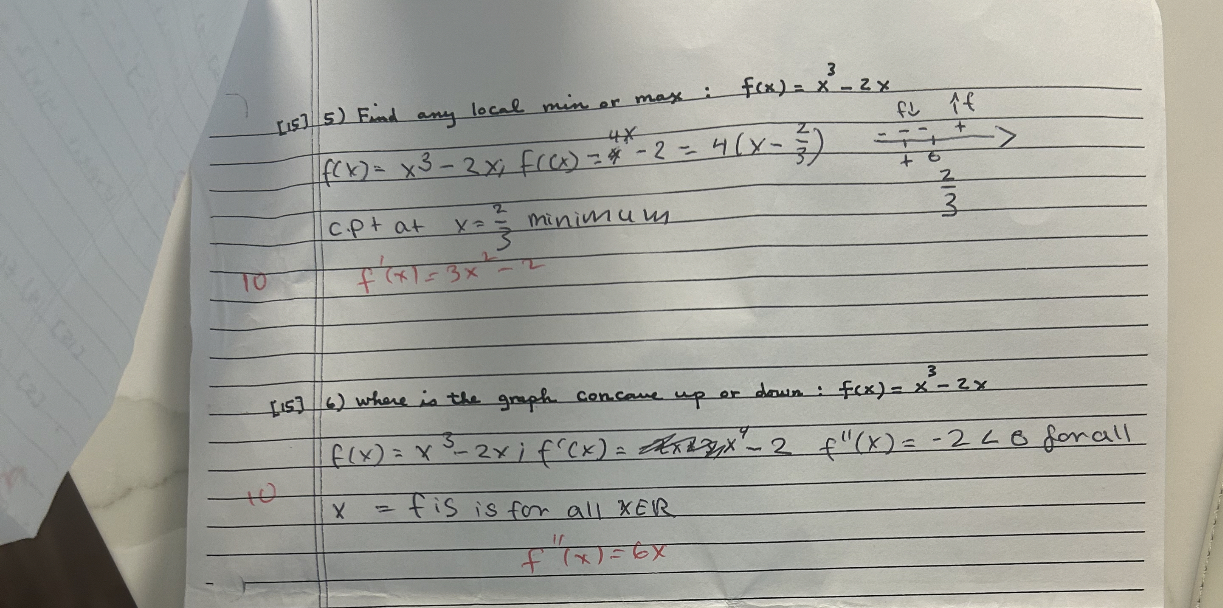 [15] 5) Find any local min or max : f(x) = x³ - 2x
f(x) = x³ - 2x; f'(x) = 4x - 2 = 4(x - 2/3)
f↓ ↑f
- - - +
+ 0
2/3
c.pt at x = 2/3 minimum
10 f'(x) = 3x² - 2
[15] 6) where is the graph concave up or down : f(x) = x³ - 2x
f(x) = x³ - 2x ; f'(x) = x⁴ - 2 f''(x) = -2 < 0 for all
10 x = f is is for all x∈ℝ
f''(x) = 6x